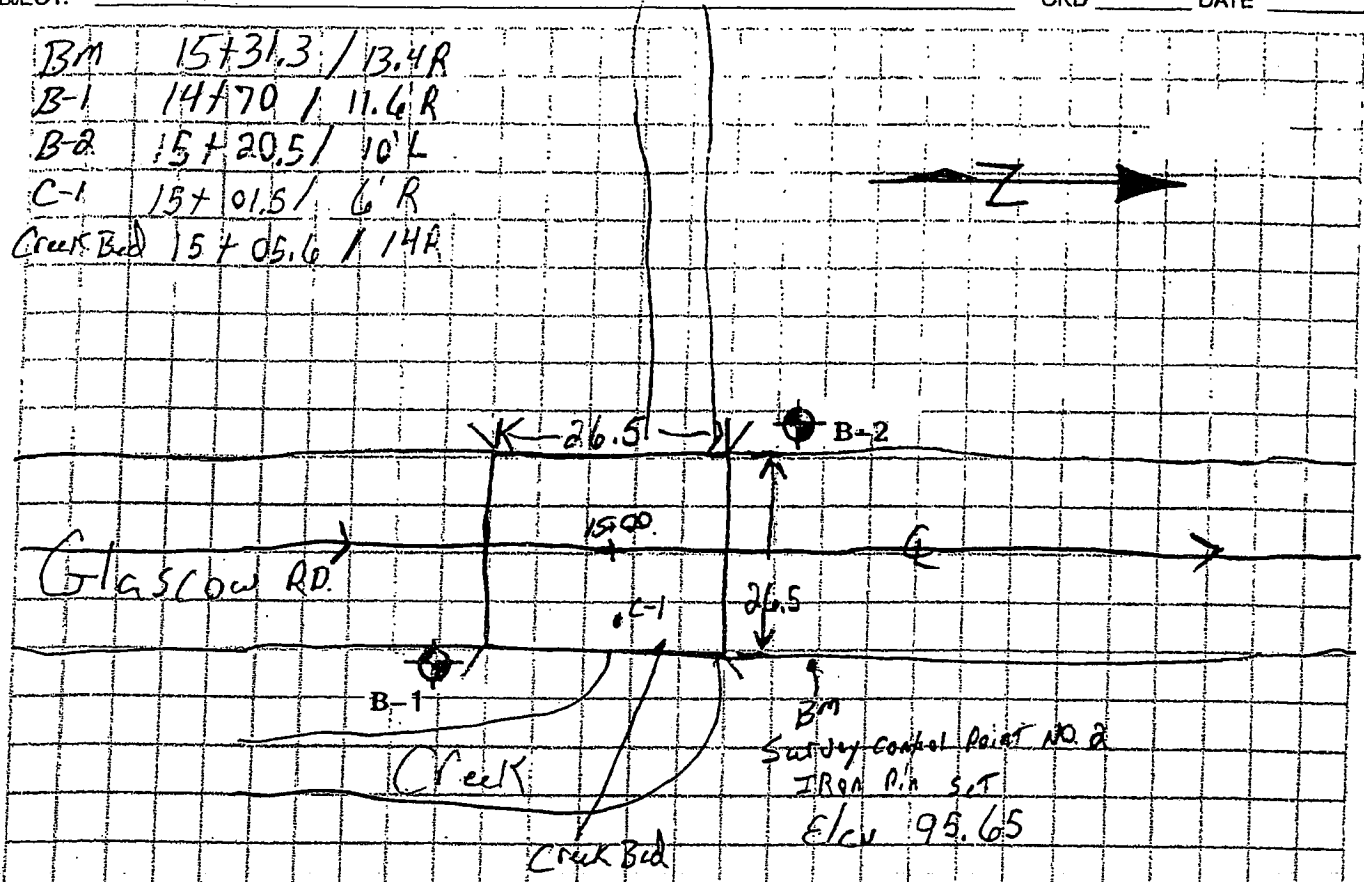 ORD DATE
BM 15+31.3 / 13.4R
B-1 14+70 / 11.6 R
B-2 15+20.5 / 10' L
C-1 15+01.5 / 6' R
Creek Bed 15+05.6 / 14R
Z
26.5
B-2
15+00
℄
Glascow RD.
.C-1
26.5
B-1
BM
Survey Control Point NO. 2
IRon Pin Set
Elev 95.65
Creek
Creek Bed